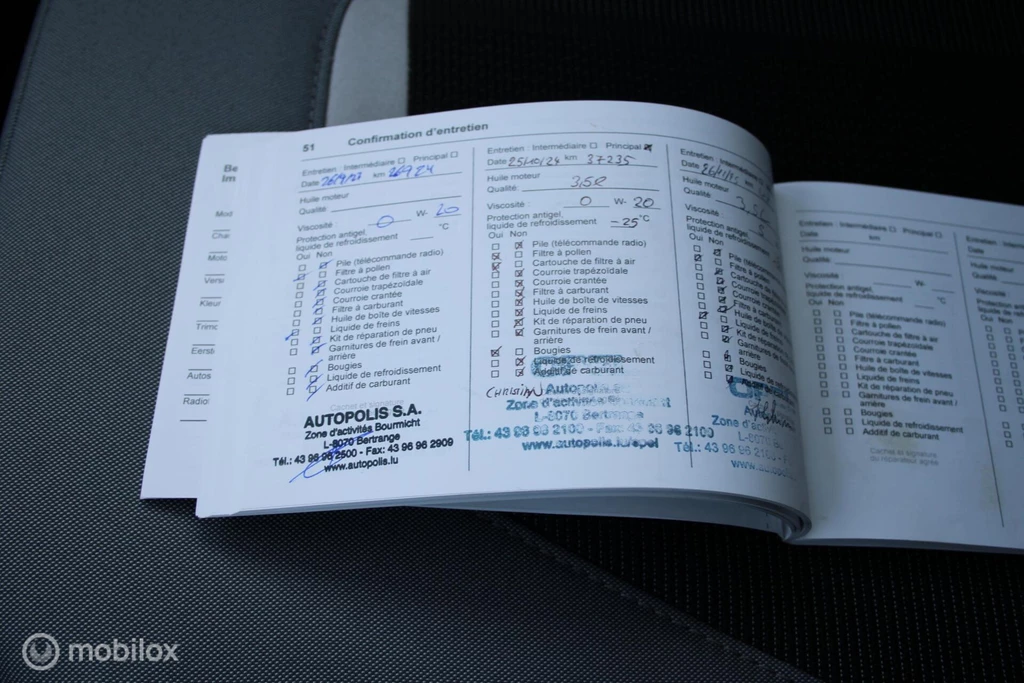 Be
Im
Mod
Cha
Moto
Versi
Kleur
Trimc
Eerst
Autos
Radio
51 Confirmation d'entretien
Entretien : Intermédiaire Principal
Date km 26924
Huile moteur
Qualité:
Viscosité : 0 W- 20
Protection antigel,
liquide de refroidissement °C
Oui Non
Pile (télécommande radio)
Filtre à pollen
Cartouche de filtre à air
Courroie trapézoïdale
Courroie crantée
Filtre à carburant
Huile de boîte de vitesses
Liquide de freins
Kit de réparation de pneu
Garnitures de frein avant /
arrière
Bougies
Liquide de refroidissement
Additif de carburant
Cachet et signature
AUTOPOLIS S.A.
Zone d'activités Bourmicht
L-8070 Bertrange
Tél.: 43 96 96 2500 - Fax: 43 96 96 2909
www.autopolis.lu
Entretien : Intermédiaire Principal
Date 25/10/24 km 37235
Huile moteur
Qualité: 3,5l
Viscosité : 0 W- 20
Protection antigel,
liquide de refroidissement -25 °C
Oui Non
Pile (télécommande radio)
Filtre à pollen
Cartouche de filtre à air
Courroie trapézoïdale
Courroie crantée
Filtre à carburant
Huile de boîte de vitesses
Liquide de freins
Kit de réparation de pneu
Garnitures de frein avant /
arrière
Bougies
Liquide de refroidissement
Additif de carburant
Christian
Autopolis
Zone d'activités Bourmicht
L-8070 Bertrange
Tél.: 43 96 96 2100 - Fax: 43 96 96 2100
www.autopolis.lu/opel
Entretien : Intermédiaire
Date
Huile moteur
Qualité:
Viscosité
Protection antigel,
liquide de refroidissement
Oui Non
Pile (télécomman
Filtre à pollen
Cartouche de
Courroie trapé
Courroie cran
Filtre à carbu
Huile de boîte
Liquide
Kit de répara
Garnitures de
arrière
Bougies
Liquide de re
Zone d'ac
L-80
Tél.: 43 96 96 2100 - F
www.auto
Entretien : Intermédiaire Principal
Date km
Huile moteur
Qualité:
Viscosité : W-
Protection antigel,
liquide de refroidissement °C
Oui Non
Pile (télécommande radio)
Filtre à pollen
Cartouche de filtre à air
Courroie trapézoïdale
Courroie crantée
Filtre à carburant
Huile de boîte de vitesses
Liquide de freins
Kit de réparation de pneu
Garnitures de frein avant /
arrière
Bougies
Liquide de refroidissement
Additif de carburant
Cachet et signature
du réparateur agréé
Entretien : Interm
Date
Huile moteur
Qualité:
Viscosité :
Protection
liquide de
Oui Non
mobilox